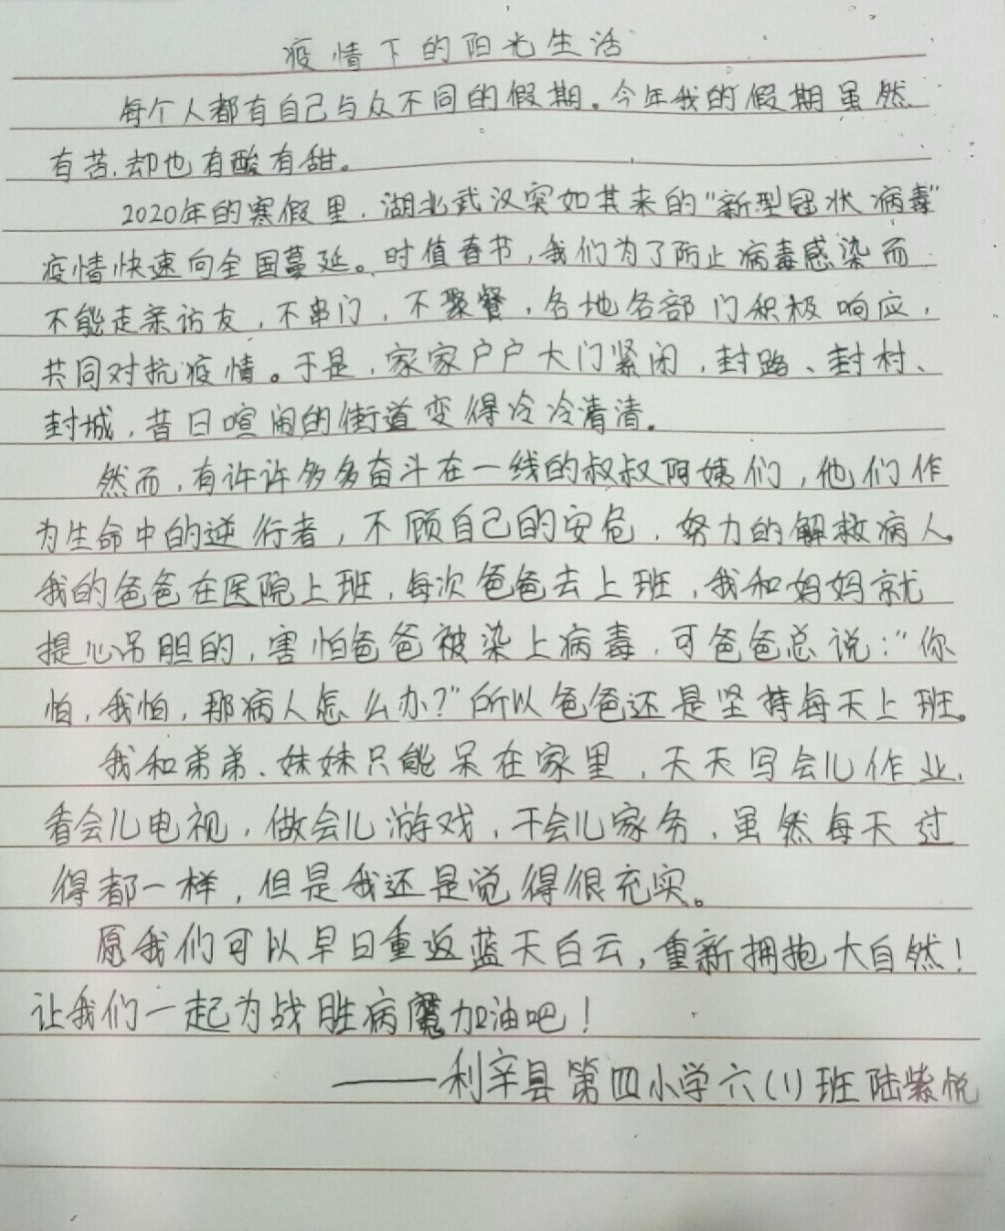 疫情下的阳光生活
每个人都有自己与众不同的假期。今年我的假期虽然
有苦,却也有酸有甜。
2020年的寒假里,湖北武汉突如其来的"新型冠状病毒"
疫情快速向全国蔓延。时值春节,我们为了防止病毒感染而
不能走亲访友,不串门,不聚餐,各地各部门积极响应,
共同对抗疫情。于是,家家户户大门紧闭,封路、封村、
封城,昔日喧闹的街道变得冷冷清清。
然而,有许许多多奋斗在一线的叔叔阿姨们,他们作
为生命中的逆行者,不顾自己的安危,努力的解救病人。
我的爸爸在医院上班,每次爸爸去上班,我和妈妈就
提心吊胆的,害怕爸爸被染上病毒,可爸爸总说:"你
怕,我怕,那病人怎么办?"所以爸爸还是坚持每天上班。
我和弟弟、妹妹只能呆在家里,天天写会儿作业,
看会儿电视,做会儿游戏,干会儿家务,虽然每天过
得都一样,但是我还是觉得很充实。
愿我们可以早日重返蓝天白云,重新拥抱大自然!
让我们一起为战胜病魔加油吧!
——利辛县第四小学六(1)班陆紫悦